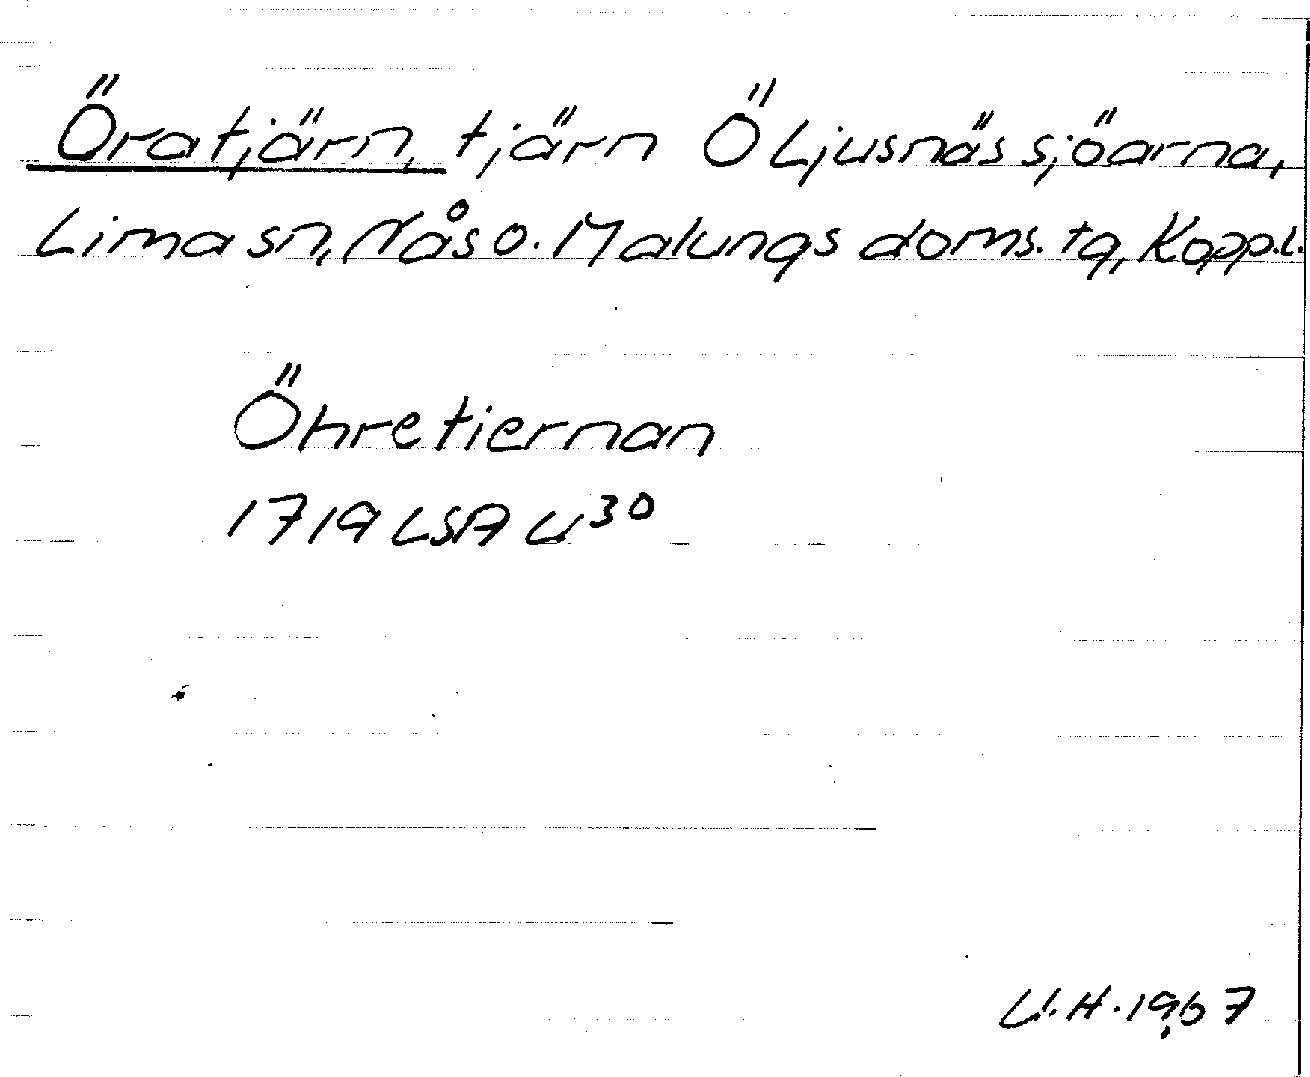 Öratjärn, tjärn Ö Ljusnässjöarna,
Lima sn, Nås o. Malungs doms. tg, Kopp.l.
Öhretiernan
1719 LSA U30
U.H. 1967